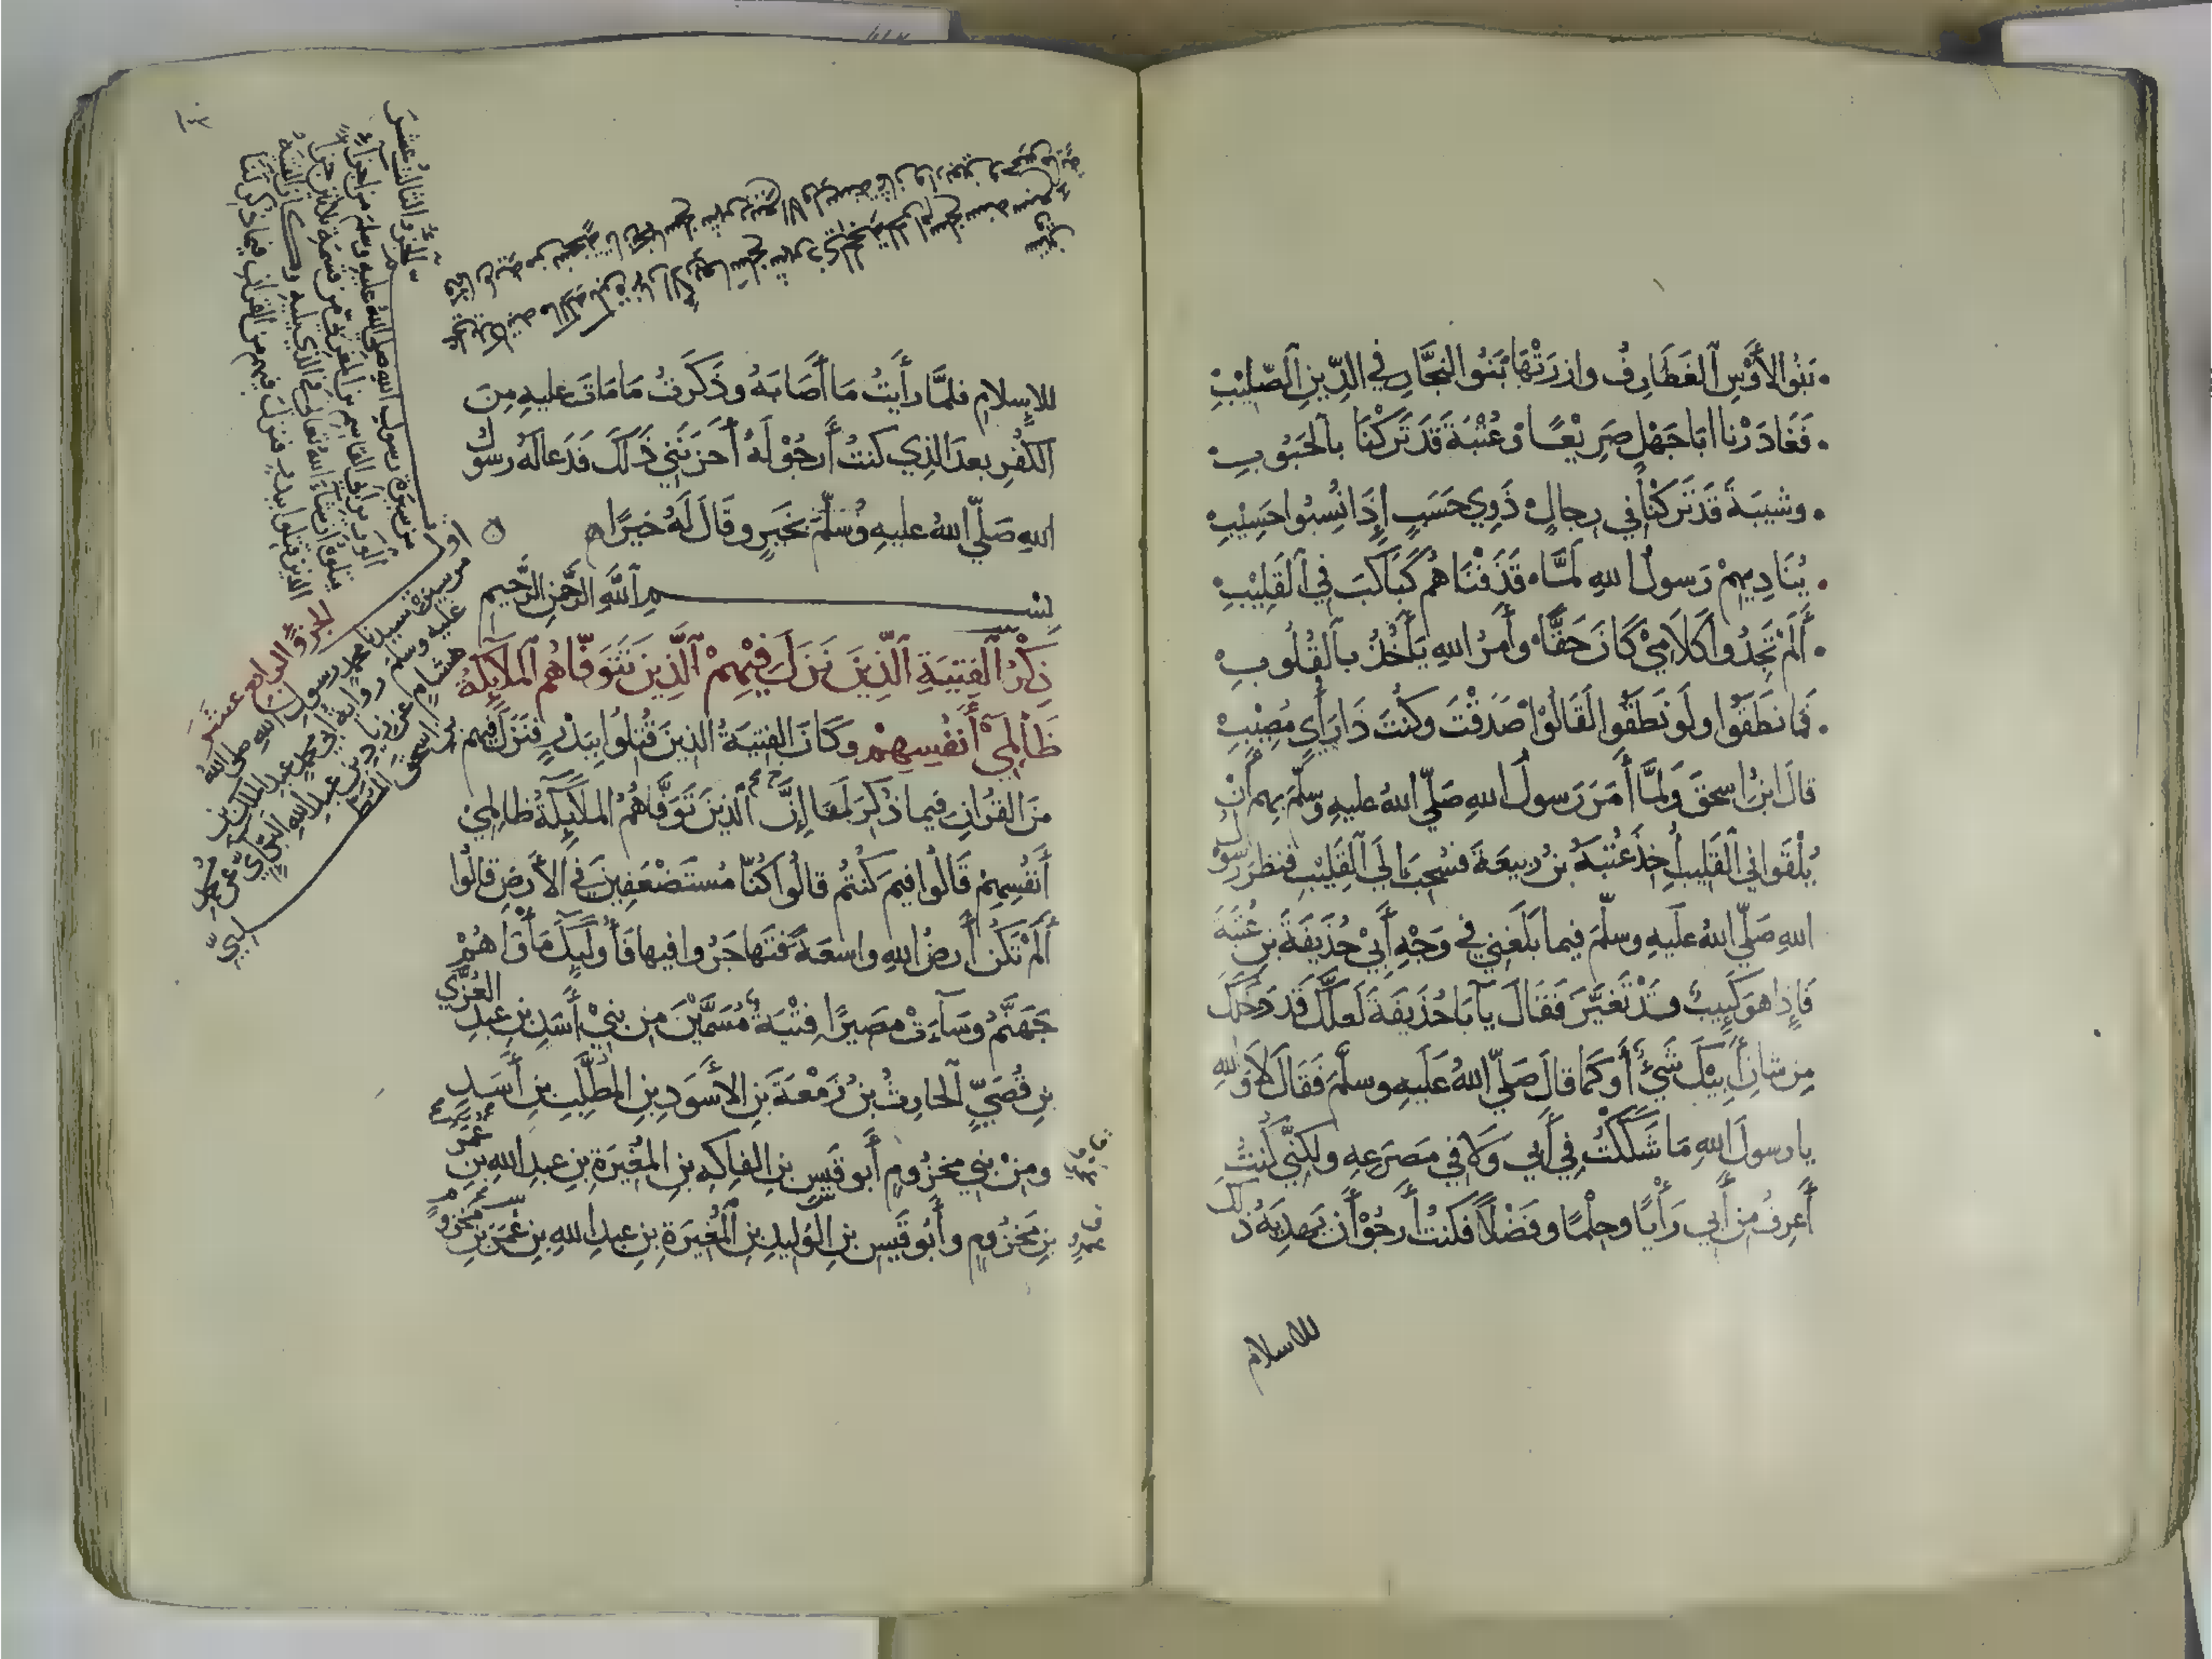 بَنُو الأَوْسِ الغَطَارِفُ وازَرَتْهَا بَنُو النَّجَّارِ في الدِّينِ الصَّلِيْبِ
فَغَادَرْنا ابَا جَهْلٍ صَرِيْعًا وَعُتْبَةَ قَدْ تَرَكْنَا بالجَبُوبِ
وشَيبَةَ قَدْ تَرَكْنَا في رِجالٍ ذَوِي حَسَبٍ إِذَا نُسِبُوا حَسِيْبِ
يُنَادِيهِمْ رَسولُ اللهِ لَمَّا قَذَفْنَاهُمْ كَبَاكِبَ فِي القَلِيْبِ
أَلَمْ تَجِدُوا كَلَامِي كَانَ حَقًّا وأَمْرُ اللهِ يَأْخُذُ بالقُلُوبِ
فَمَا نَطَقُوا ولَو نَطَقُوا لَقَالُوا صَدَقْتَ وكُنْتَ ذَا رَأْيٍ مُصِيْبِ
قالَ ابنُ اسحقَ وَلمَّا أَمَرَ رَسولُ اللهِ صَلّى اللهُ عليهِ وسلّمَ بِهِم أَنْ
يُلْقَوا في القَلِيبِ أُخِذَ عُتْبَةُ بنُ رَبِيعَةَ فَسُحِبَ إلَى القَلِيْبِ فنظرَ رسولُ
اللهِ صَلّى اللهُ عَلَيهِ وسلّمَ فيما بَلَغَنِي في وَجْهِ أَبي حُذَيفَةَ بنِ عُتبَةَ
فَإِذا هوَ كَئِيبٌ قَدْ تَغَيَّرَ فَقَالَ يَآ بَا حُذَيفَةَ لَعلَّكَ قَد دَخَلَكَ
مِن شانِ أَبِيْكَ شَيْءٌ أَو كَمَا قالَ صَلّى اللهُ عَلَيهِ وسلَّمَ فَقَالَ لَا وَاللهِ
يا رسولَ اللهِ مَا شَكَكْتُ فِي أَبي وَلَا في مَصْرَعِهِ ولكِنَّنِي كُنتُ
أَعرِفُ مِن أَبي رَأْيًا وحِلْمًا وفَضْلًا فكنتُ أَرجُوْ أَن يَهدِيَهُ ذلكَ
للاسلام
للإسلامِ فلمَّا رأَيتُ مَا أَصَابَهُ وذَكَرْتُ مَا مَاتَ عليهِ مِنَ
الكُفْرِ بعدَ الذِي كنتُ أَرجُوْ لَهُ أَحزَنَنِي ذَلكَ فَدَعا لَهُ رسولُ
اللهِ صَلّى اللهُ عليهِ وسَلَّمَ بخَيرٍ وقَالَ لَهُ خيرًا
بِسْمِ اللَّهِ الرَّحْمَنِ الرَّحِيمِ
ذِكْرُ الفِتيَةِ الَّذِينَ نَزَلَ فِيْهِمْ الَّذِينَ تَتَوَفَّاهُم المَلَائِكَةُ
ظَالِمِيْ أَنفُسِهِمْ وكَانَ الفِتيَةُ الذِينَ قُتِلُوا بِبَدْرٍ فَنَزَلَ فِيهم
مِنَ القُرْانِ فيما ذُكِرَ لَنا إِنَّ الَّذِينَ تَوَفَّاهُمُ المَلَائِكَةُ ظَالِمِيْ
أَنفُسِهِمْ قَالُوا فِيمَ كنتُم قالُوا كُنَّا مُستَضعَفِينَ في الأَرضِ قالُوا
أَلَمْ تَكُنْ أَرضُ اللهِ واسِعَةً فتُهاجِرُوا فيها فَأُولَئِكَ مَأْوَاهُمْ
جَهَنَّمُ وسَآءَتْ مَصِيرًا فِتْيَةٌ مُسَمَّيْنَ مِن بَنِيْ أَسَدِ بنِ عبدِ العُزَّى
بنِ قُصَيٍّ الحارِثُ بنُ زَمْعَةَ بنِ الأَسْوَدِ بنِ المُطَّلِبِ بنِ أَسَدِ
ومِنْ بَنِي مَخزُومٍ أَبو قَيسِ بنِ الفاكِهِ بنِ المُغِيرَةِ بنِ عبدِ اللهِ بنِ عُمَرَ
بنِ مَخزُومٍ وأَبُو قَيسِ بنِ الوَلِيدِ بنِ المُغِيرَةِ بنِ عبدِ اللهِ بنِ عُمَرَ بنِ مَخزُومٍ
الجُزؤُ الثالثُ عَشَرَ
من سِيرةِ رسولِ اللهِ صلى اللهُ عليهِ وسلم من اجزاءِ
يتلوهُ ان شاء اللهُ تعالى في الذي يليهِ وكان الفتيةُ
الذين قتلوا ببدرٍ فنزل فيهم من القرانِ فيما ذكر لنا
اول
الجزؤُ الرابع عشَرَ
من سِيرةِ سيدنا محمدٍ رسولِ اللهِ صلى اللهُ
عليه وسلم روايةُ ابي محمدٍ عبدِ الملكِ بنِ
هشامٍ عن زيادِ بنِ عبدِ اللهِ البَكَّائِيّ عن محمد
بن اسحقَ المطلبيّ